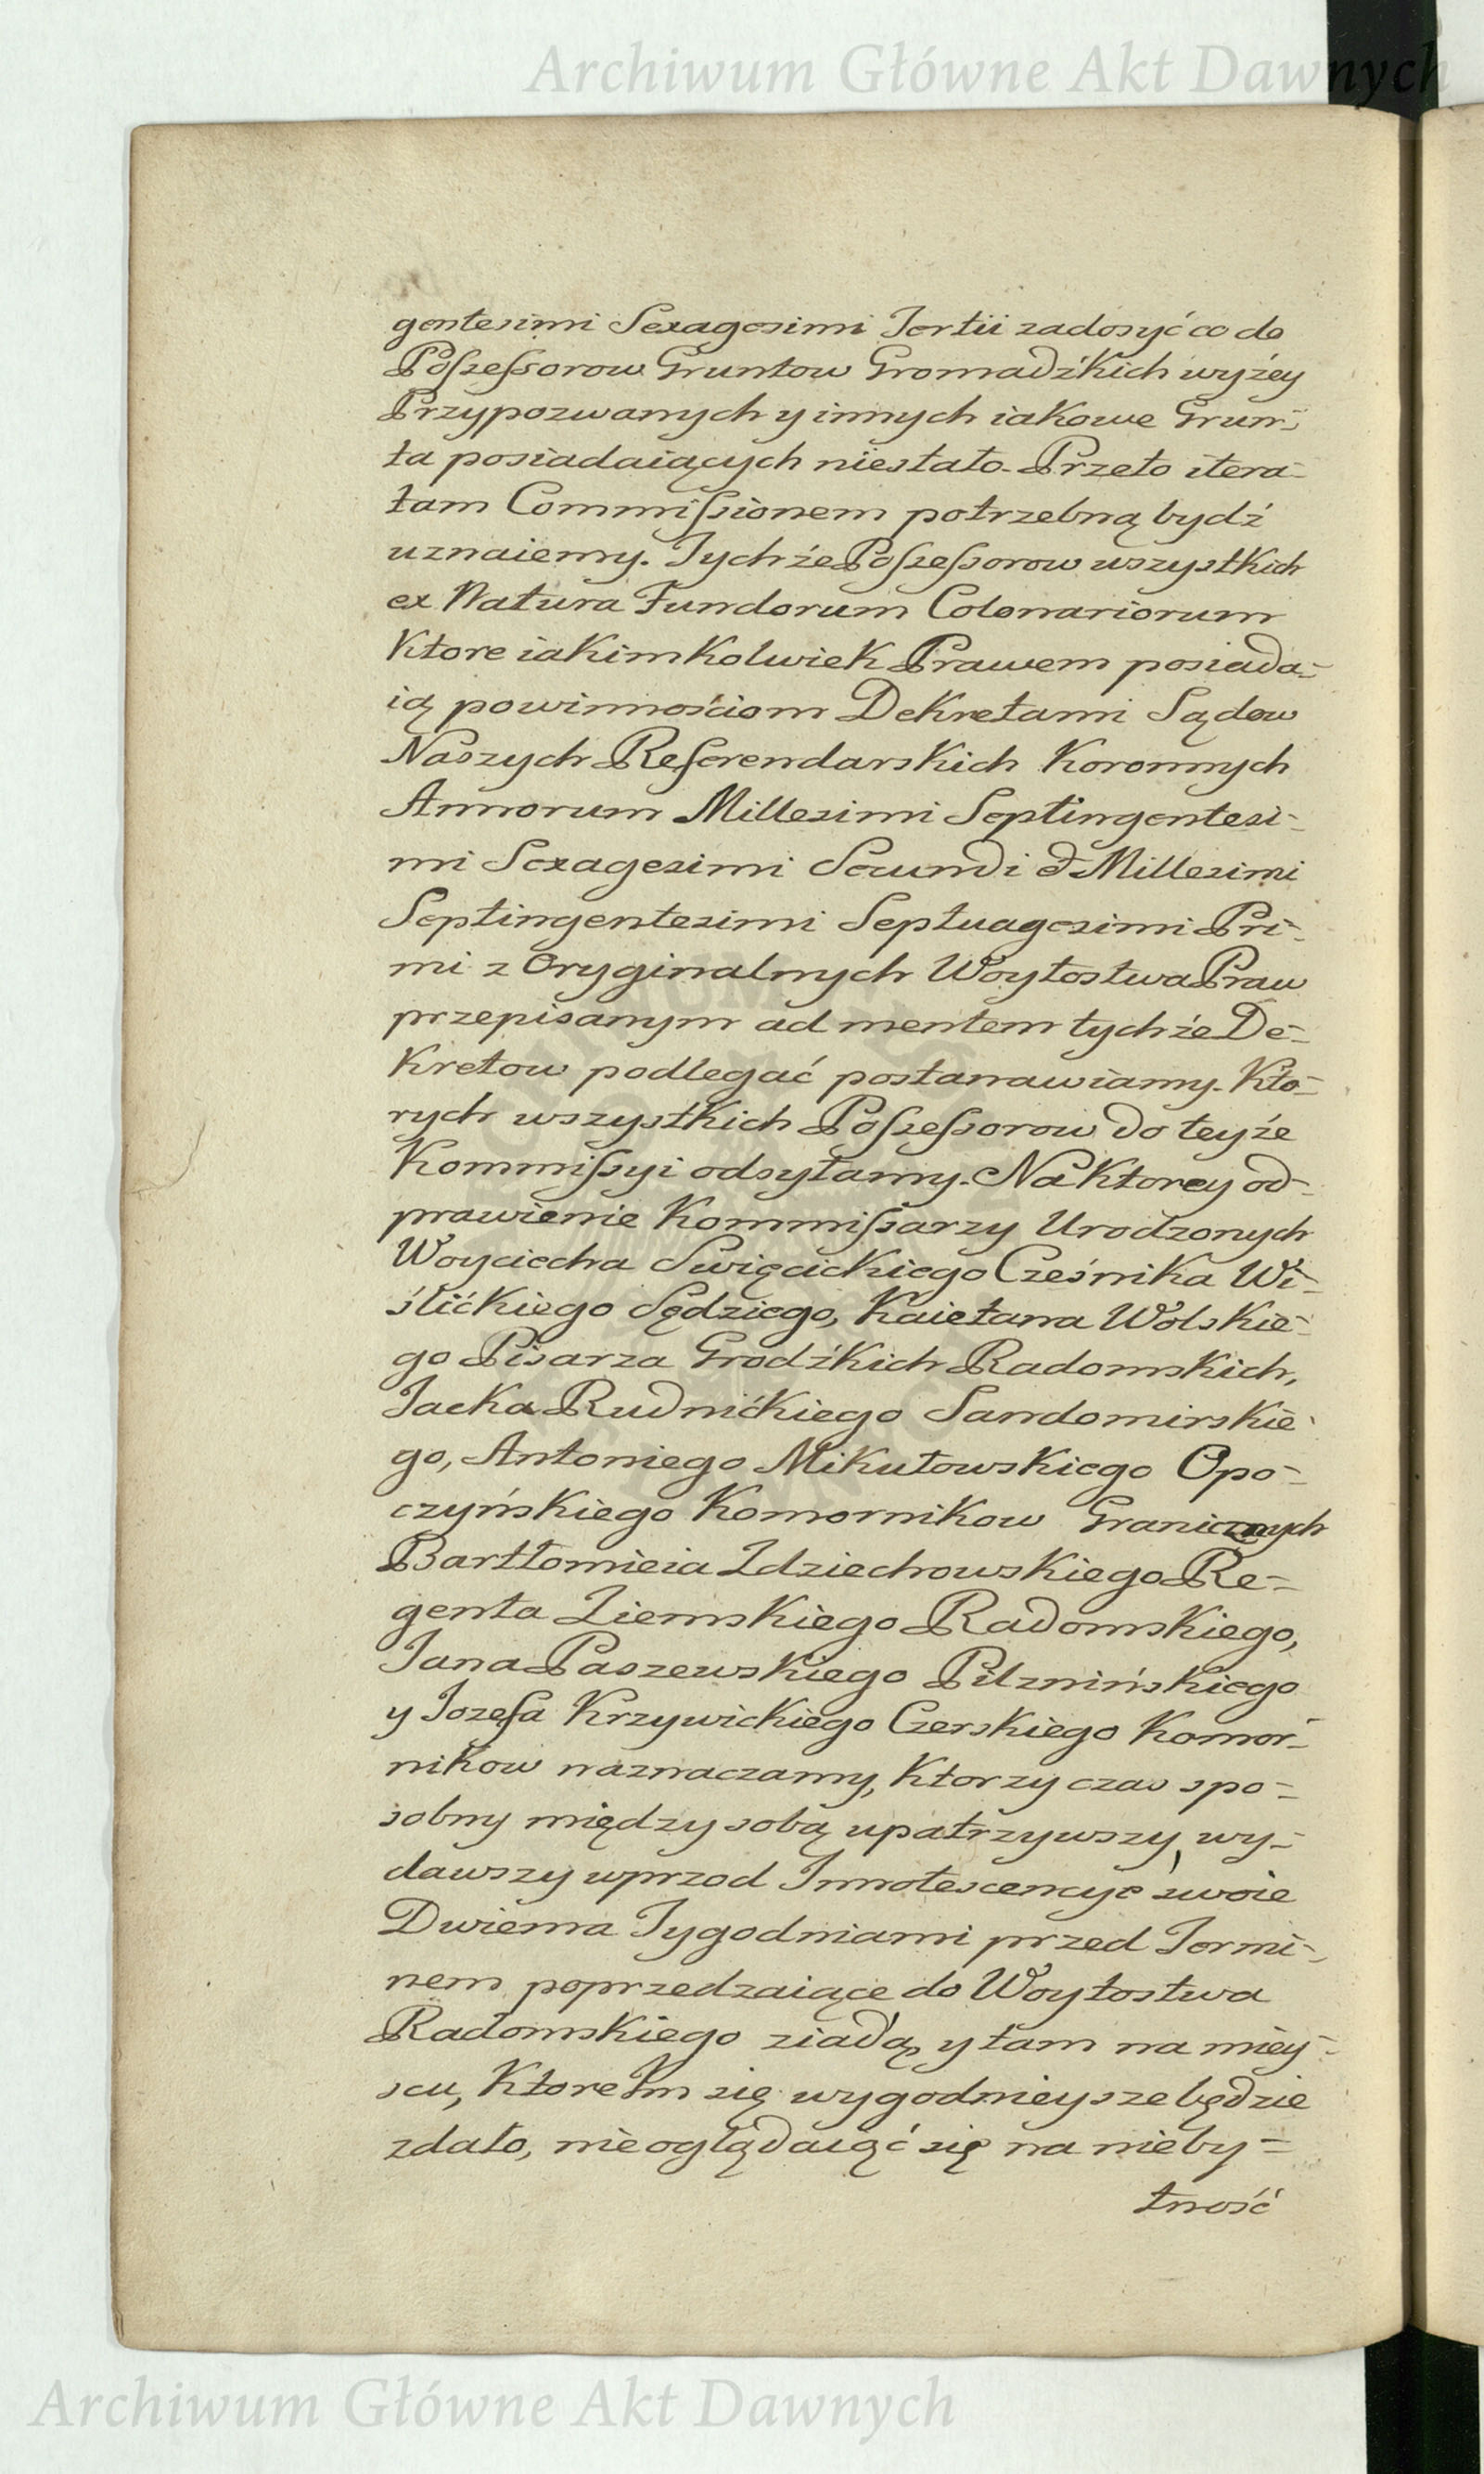 Archiwum Główne Akt Dawnych
gentesimi Sexagesimi Tertii zadosyć co do
Possessorow Gruntow Gromadźkich wyżey
Przypozwanych y innych iakowe Grun-
ta posiadaiących niestało. Przeto itera-
tam Commissionem potrzebną bydź
uznaiemy. Tychże Possessorow wszystkich
ex Natura Fundorum Colonariorum
Ktore iakimkolwiek Prawem posiada-
ią powinnościom Dekretami Sądow
Naszych Referendarskich Koronnych
Annorum Millesimi Septingentesi-
mi Sexagesimi Secundi & Millesimi
Septingentesimi Septuagesimi Pri-
mi z Oryginalnych Woytostwa Praw
przepisanym ad mentem tychże De-
kretow podlegać postanawiamy. Kto-
rych wszystkich Possessorow do teyże
Kommissyi odsyłamy. Na Ktorey od-
prawienie Kommissarzy Urodzonych
Woyciecha Swięcickiego Cześnika Wi-
ślićkiego Sędziego, Kaietana Wolskie-
go Pisarza Grodźkich Radomskich,
Jacka Rudnićkiego Sandomirskie-
go, Antoniego Mikułowskiego Opo-
czyńskiego Komornikow Granicznych
Bartłomieia Idziechowskiego Re-
genta Ziemskiego Radomskiego,
Jana Paszewskiego Pilznińskiego
y Jozefa Krzywickiego Czerskiego Komor-
nikow naznaczamy, Ktorzy czas spo-
sobny między sobą upatrzywszy, wy-
dawszy wprzod Innotescencye swoie
Dwiema Tygodniami przed Termi-
nem poprzedzaiące do Woytostwa
Radomskiego ziadą, y tam na miey-
scu, Ktore Im się wygodnieysze będzie
zdało, nie oglądaiąć się na nieby-
tność
Archiwum Główne Akt Dawnych